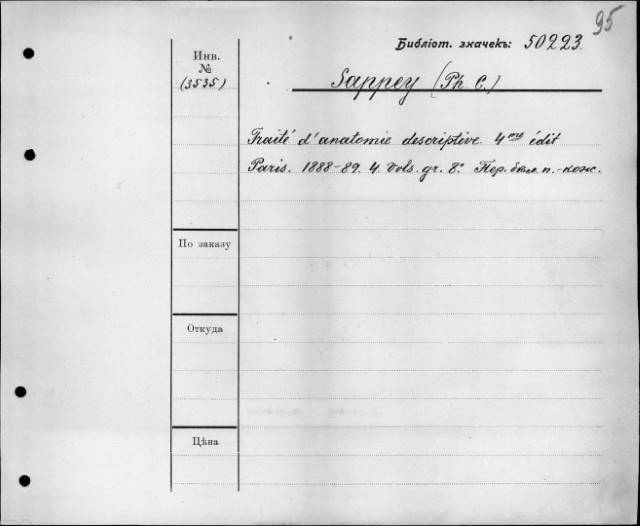 95
Библіот. значекъ: 50223.
Инв.
№
(3535)
Sappey (Ph. C.)
Traité d'anatomie descriptive. 4me édit
Paris. 1888-89. 4. Vols. gr. 8.° Пер. п.-кож.
По заказу
Откуда
Цѣна